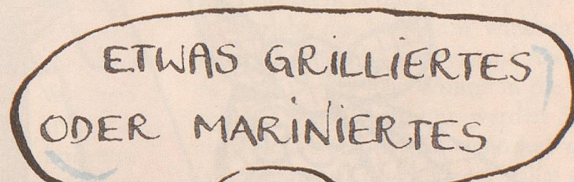 ETWAS GRILLIERTES
ODER MARINIERTES